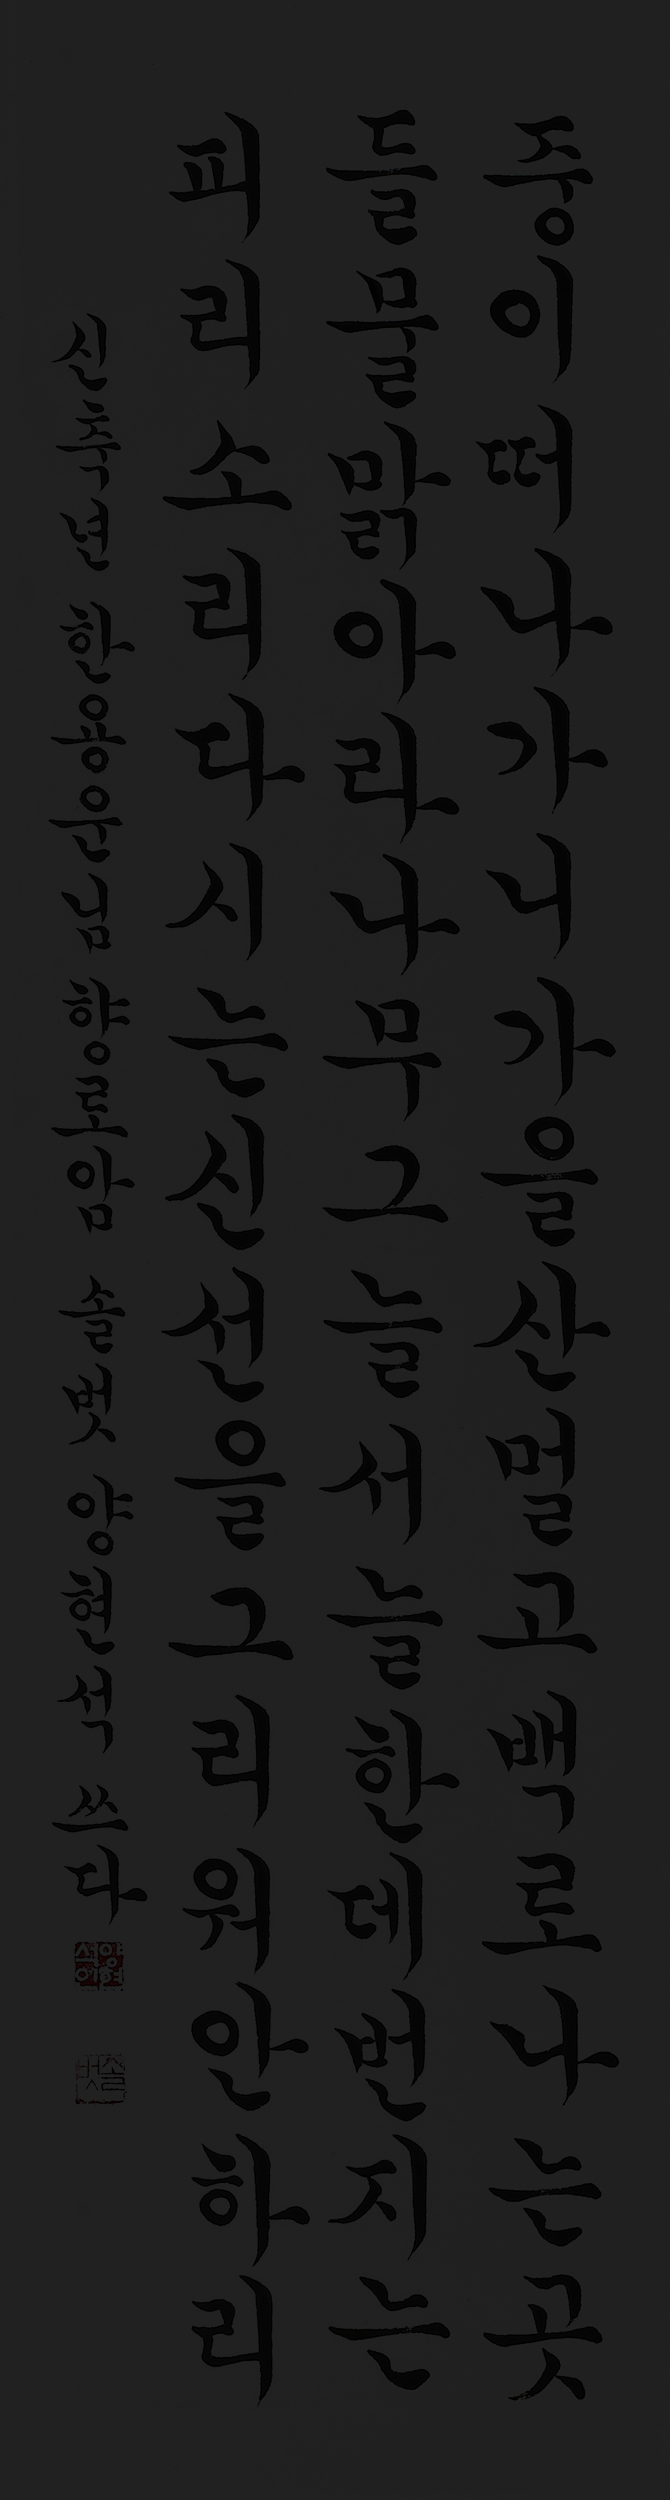 중이떠나가니가을산멀고백로나는곳
들물맑아라나무그늘서늘한데번지는
피리소리다시는신선을그리워안하리
신축년한용운님향로암 솔벗양현석쓰다